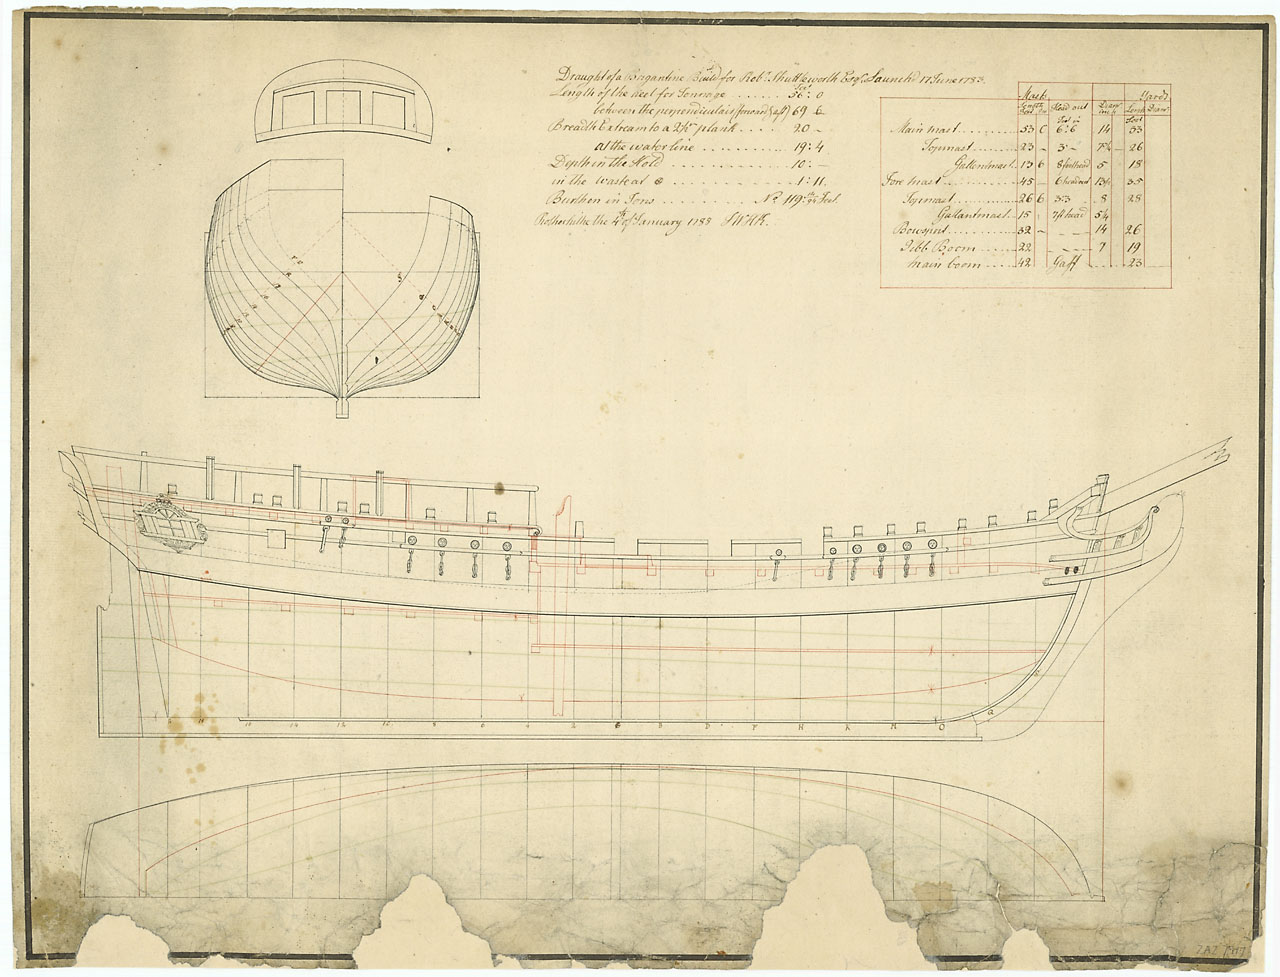 Draught of a Brigantine Built for Robt. Shuttleworth Esqr. Launch'd 17 June 1783.
Length of the Keel for Tonnage ........ 56 : 0
between the perpendiculars (forward & aft) 69 6
Breadth Extream to a 2½ in plank .... 20 –
at the water line ........ 19 : 4
Depth in the Hold ........ 10 : –
in the waste at ........ 1 : 11
Burthen in Tons ........ No. 119 Feet
Rotherhithe the 4th of January 1788
Masts Yards
Length Head out Diamr Length Diamr
Main mast ........ 53 6 : 6 14 33
Topmast ........ 23 – 3 – 26
Gallantmast .. 13 6 5 18
Fore mast ........ 45 – 35
Topmast ........ 26 6 3 : 3 8 28
Gallantmast .. 15 head 5¼
Bowsprit ........ 32 – 14 26
Jibb Boom ........ 22 7 19
main boom ........ 42 Gaff 23